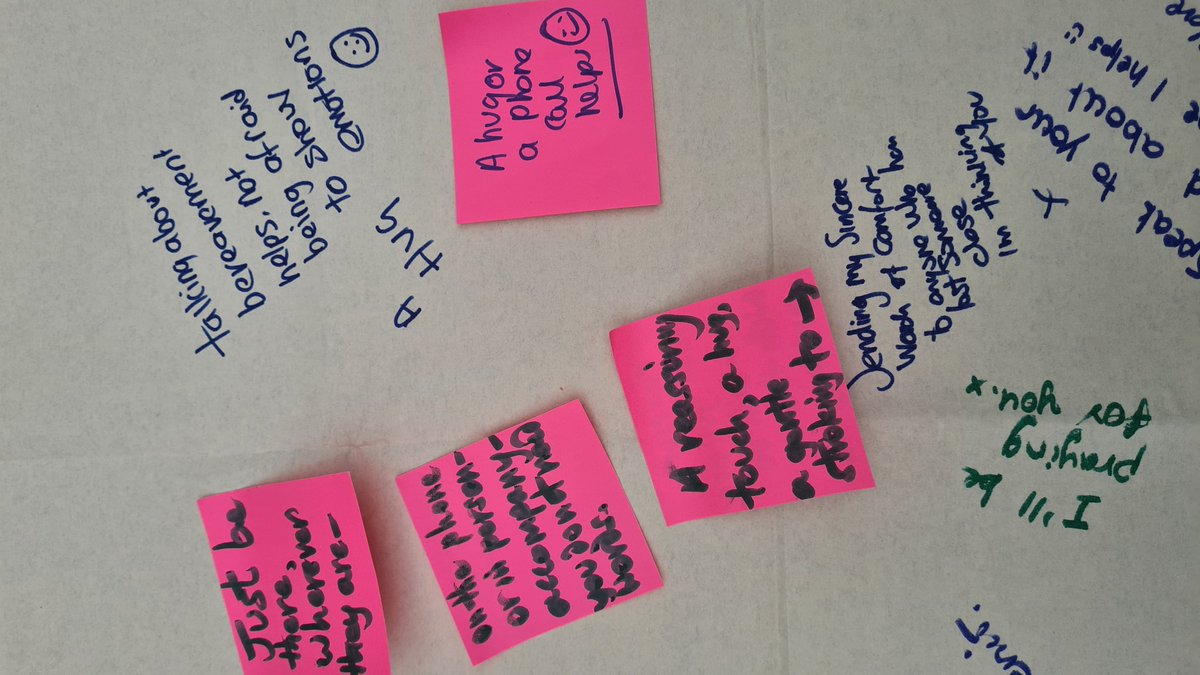 talking about
bereavement
helps, not
being afraid
to show
emotions
A HUG
A hug or
a phone
call
helps
Just be
there,
wherever
they are-
on the phone-
or in person-
accompany-
you don't need
words.
A reassuring
touch, a hug,
a gentle
stroking to →
Sending my sincere
words of comfort
to anyone who
lost someone
close
Im thinking of you
x
speak to your
about it
I helps
I'll be
praying
for you. x